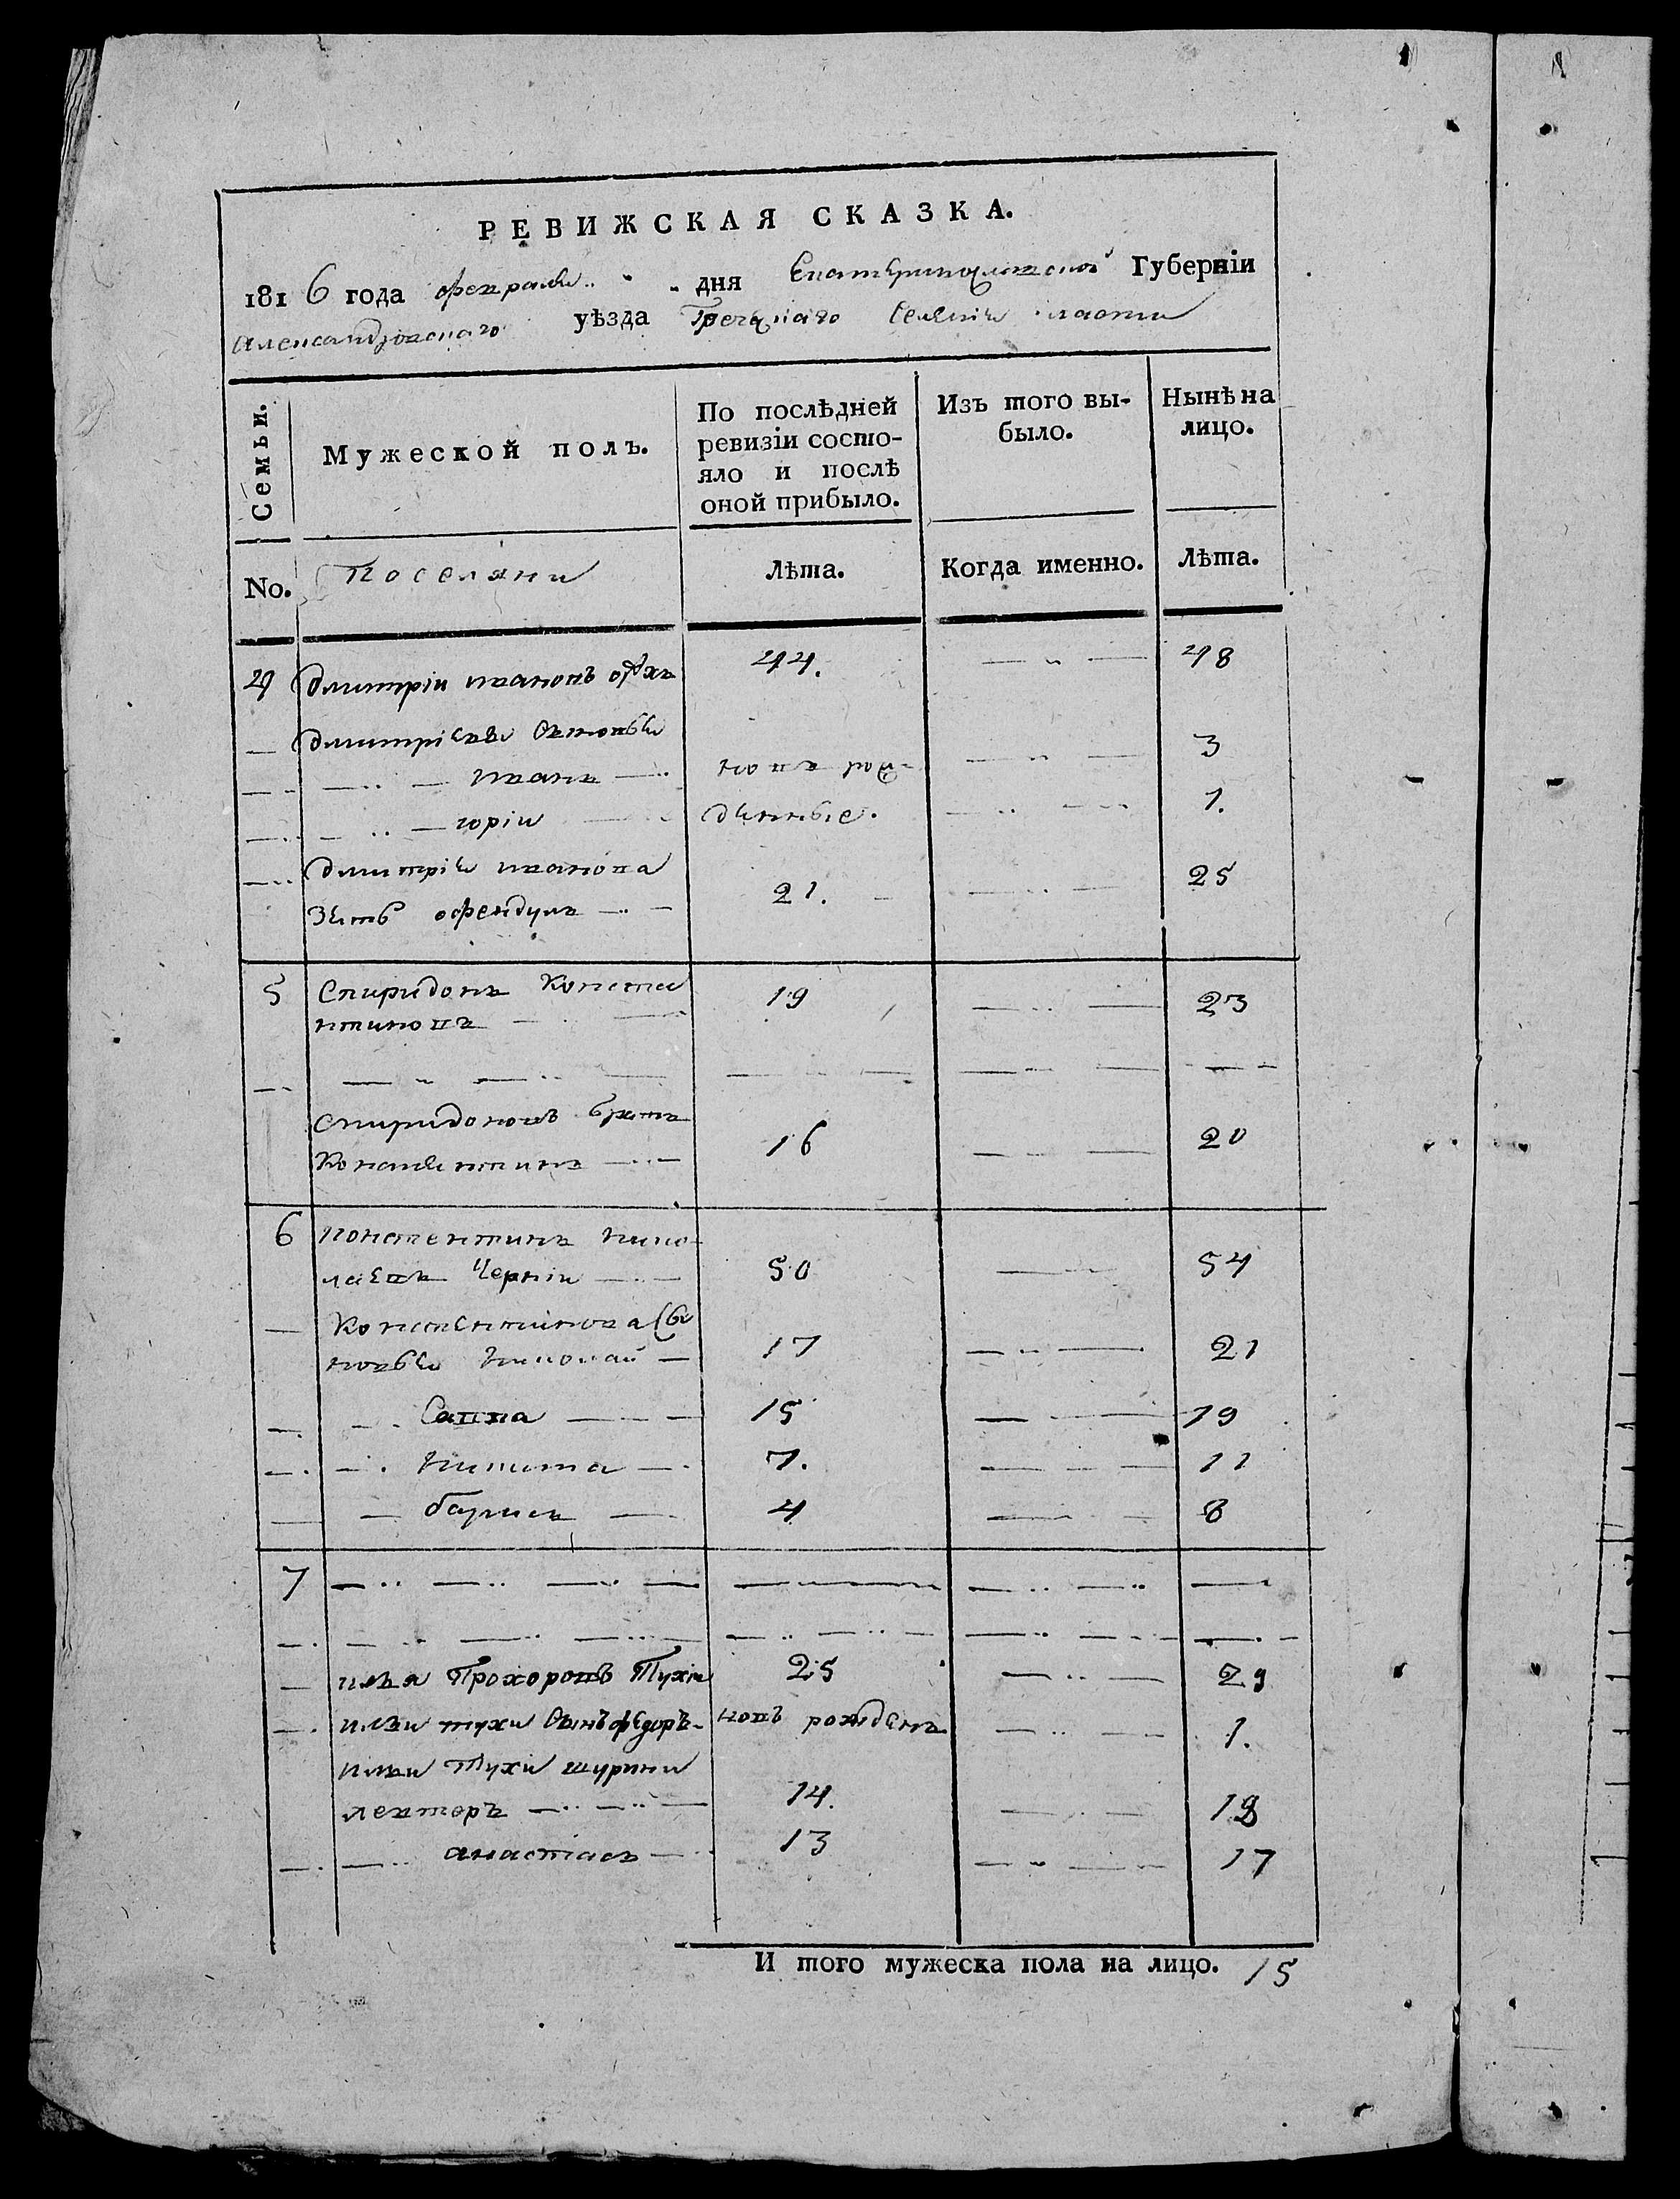 РЕВИЖСКАЯ СКАЗКА.
1816 года февраля дня Екатеринославской Губерніи
Александровскаго уѣзда Греческаго селенія ласпи
Семьи.
Мужеской полъ.
По послѣдней ревизіи состо-
яло и послѣ
оной прибыло.
Изъ того вы-
было.
Нынѣ на
лицо.
No. Поселяни Лѣта. Когда именно. Лѣта.
4 дмитріи ивановъ 44. 48
дмитріевы сыновья
иванъ новъ рож- 3
юріи денные. 1.
дмитрія иванова
зять афендулъ 21. 25
5 Спиридонъ Конста 19 23
нтиновъ
спиридоновъ братъ
Константинъ 16 20
6 Константинъ нико-
лаевъ Чернiи 50 54
Константинова сы
новья николаи 17 21
Савва 15 19
никита 7. 11
барисъ 4 8
7
илья Прохоровъ Тухiи 25 29
ильи тухи сынъ федоръ новъ рожденъ 1.
ильи Тухи шурини
лекторъ 14. 18
анастасъ 13 17
И того мужеска пола на лицо. 15